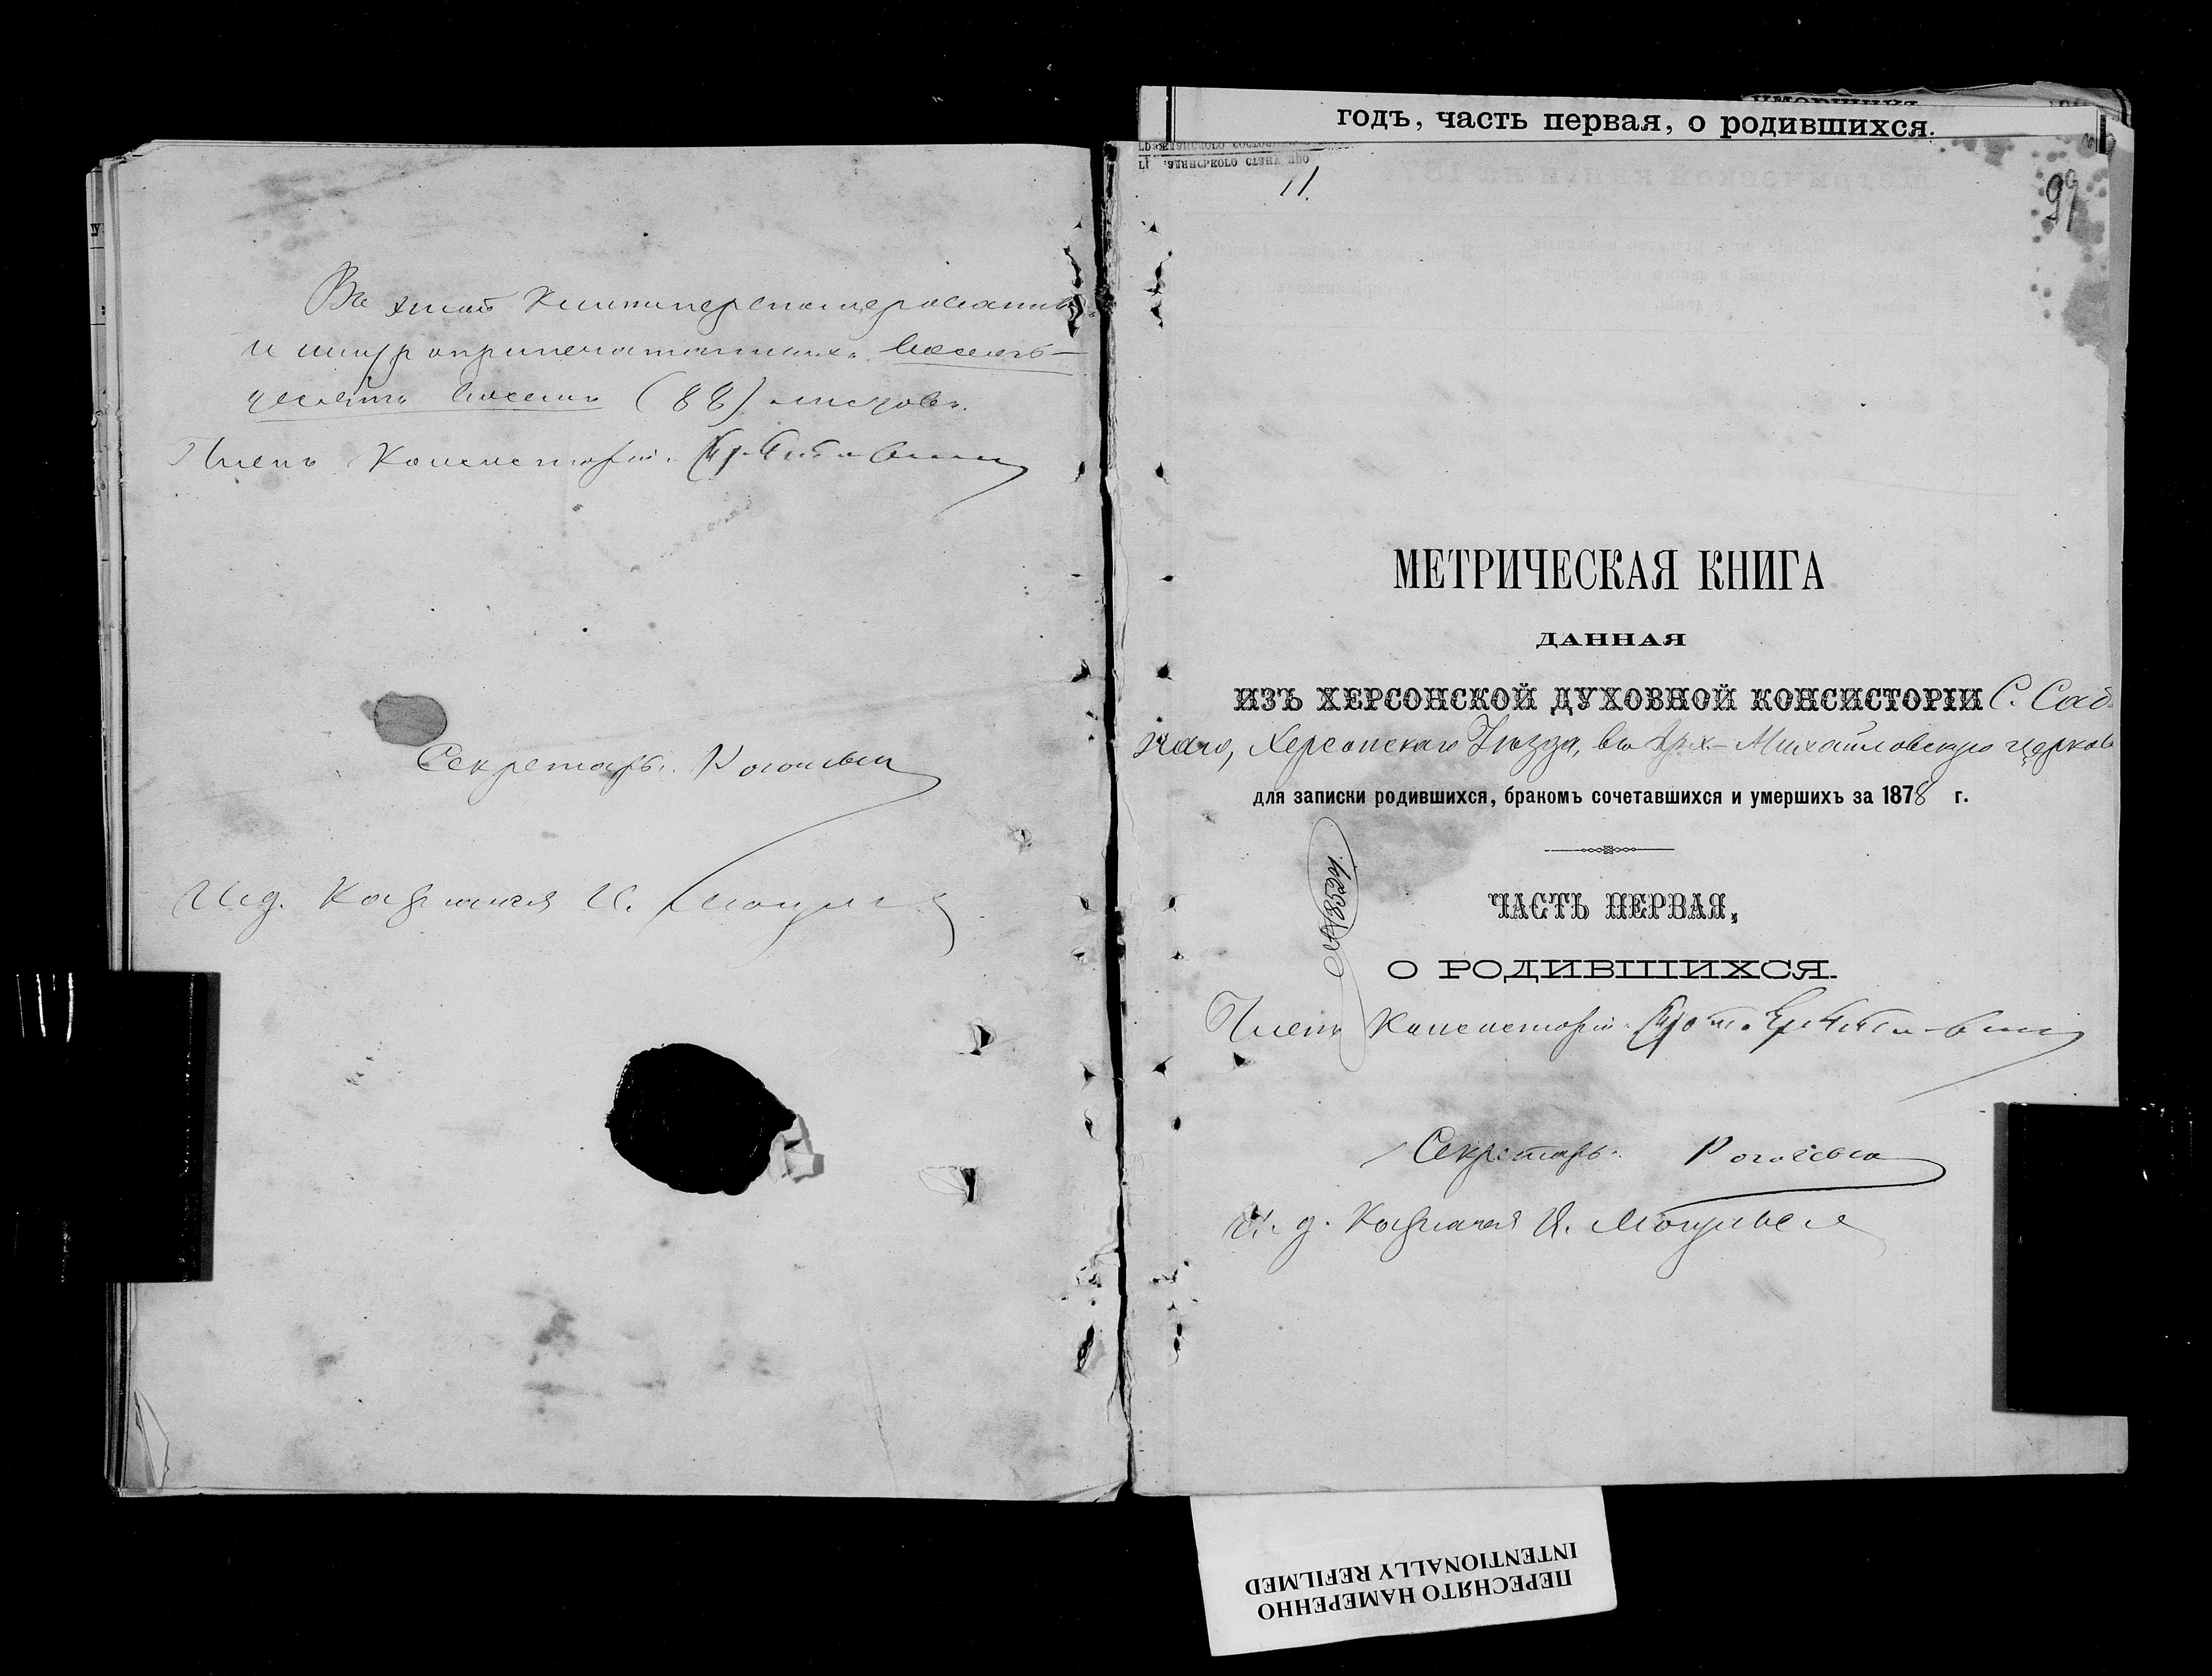 Въ этой Книгѣ перенумерованныхъ
и шнуроприпечатанныхъ восемь-
десятъ восемь (88) листовъ.
Членъ Консисторіи
Секретарь
И. д. Казначея И.
годъ, часть первая, о родившихся.
11.
99
МЕТРИЧЕСКАЯ КНИГА
ДАННАЯ
ИЗЪ ХЕРСОНСКОЙ ДУХОВНОЙ КОНСИСТОРІИ С. Сад
Херсонскаго Уѣзда, въ Арх-Михайловскую церковь
для записки родившихся, бракомъ сочетавшихся и умершихъ за 1878 г.
ЧАСТЬ ПЕРВАЯ,
О РОДИВШИХСЯ.
Членъ Консисторіи Прот.
Секретарь
И. д. Казначея И.
ПЕРЕСНЯТО НАМЕРЕННО
INTENTIONALLY REFILMED